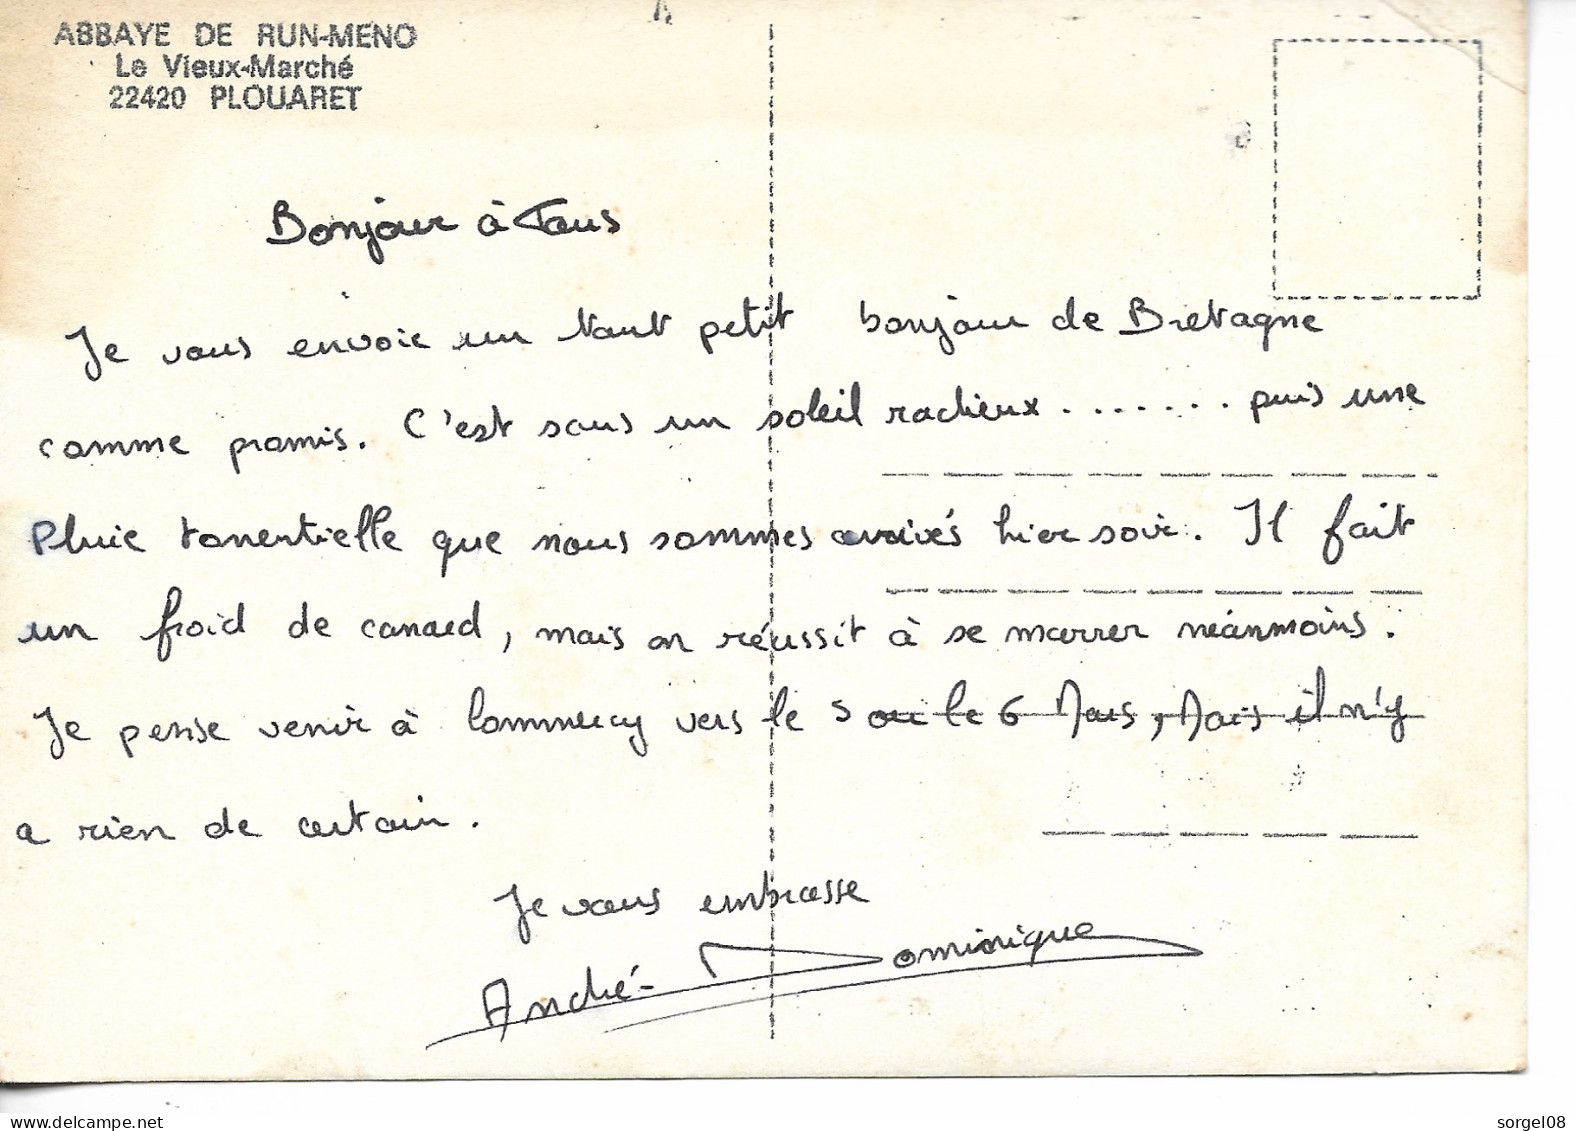 ABBAYE DE RUN-MENO
Le Vieux-Marché
22420 PLOUARET
Bonjour à Tous
Je vous envoie un tout petit bonjour de Bretagne
comme promis. C'est sous un soleil radieux ....... puis une
Pluie torrentielle que nous sommes arrivés hier soir. Il fait
un froid de canard, mais on réussit à se marrer néanmoins.
Je pense venir à Commercy vers le 5 ou le 6 Mars, Mais il n'y
a rien de certain.
Je vous embrasse
André-Dominique
www.delcampe.net
sorgel08